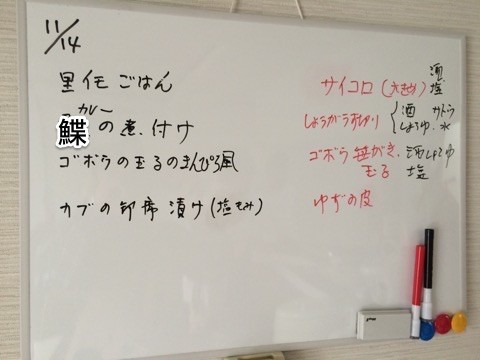 11/14
里イモ ごはん
カレー
鰈の煮付け
ゴボウの きんぴら風
カブの即席漬け(塩もみ)
サイコロ(大きめ) 酒 塩
しょうがうすぎり { 酒 サトウ
しょうゆ、水
ゴボウ 笹がき、酒しょうゆ
塩
ゆずの皮